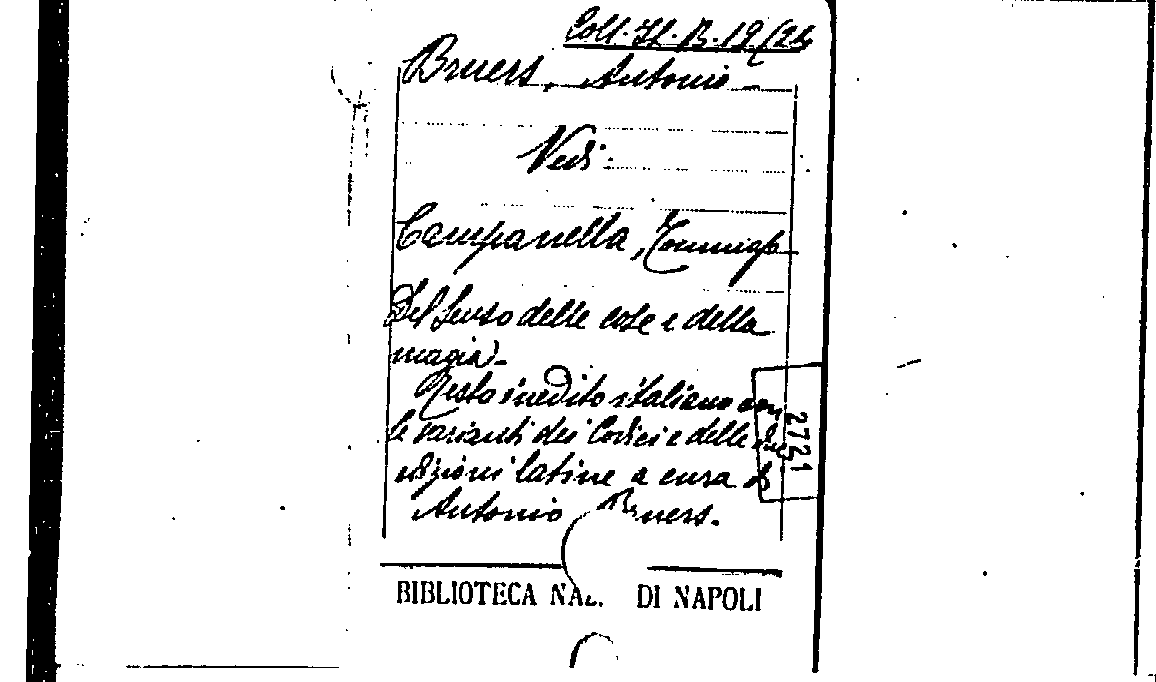 Coll. It. B. 19/24
Bruers, Antonio
Vedi:
Campanella, Tommaso
Del senso delle cose e della
magia.
Testo inedito italiano con
le varianti dei Codici e delle due
edizioni latine a cura di
Antonio Bruers.
2721
BIBLIOTECA NAZ. DI NAPOLI